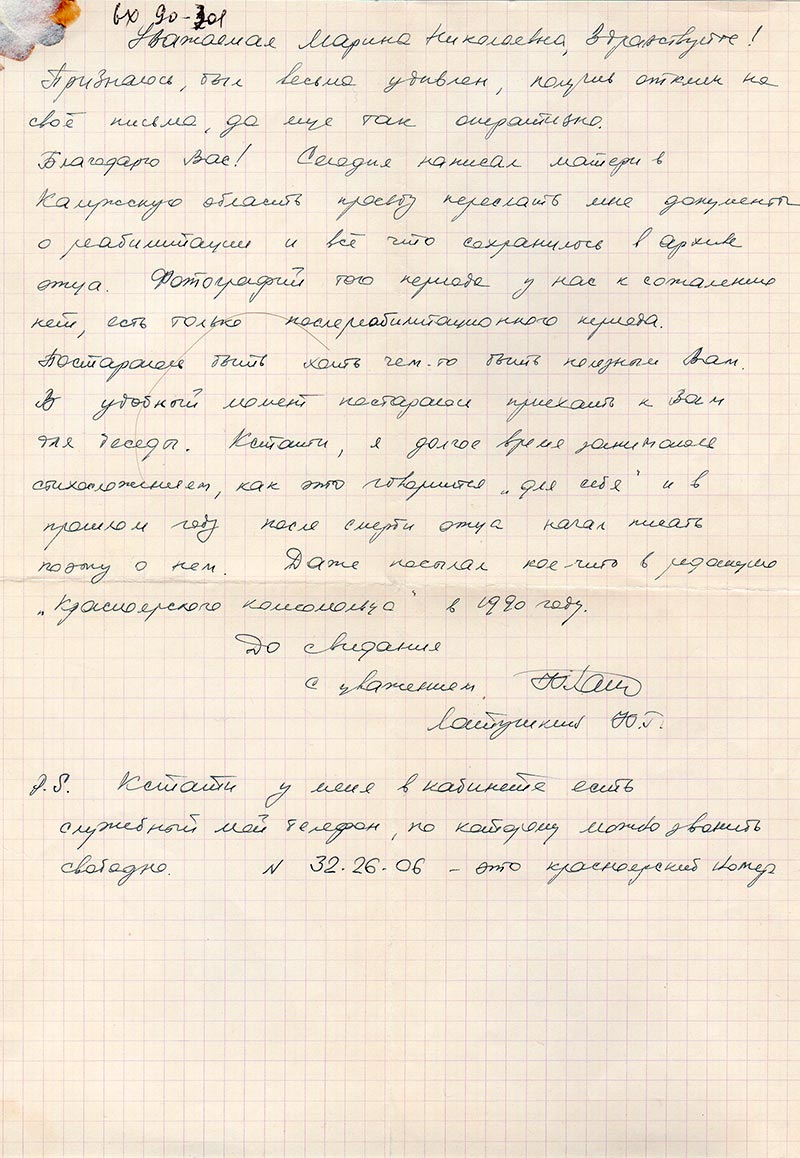 вх 90-301
Уважаемая Марина Николаевна, Здравствуйте!
Признаюсь, был весьма удивлен, получив отклик на
своё письмо, да еще так оперативно.
Благодарю Вас! Сегодня написал матери в
Калужскую область просьбу переслать мне документы
о реабилитации и всё что сохранилось в архиве
отца. Фотографий того периода у нас к сожалению
нет, есть только послереабилитационного периода.
Постараюсь быть хоть чем-то быть полезным Вам.
В удобный момент постараюсь приехать к Вам
для беседы. Кстати, я долгое время занимаюсь
стихосложением, как это говорится „для себя" и в
прошлом году после смерти отца начал писать
поэму о нем. Даже посылал кое-что в редакцию
„Красноярского комсомольца" в 1990 году.
До свидания
с уважением,
Ю.Г.
P.S. Кстати у меня в кабинете есть
служебный мой телефон, по которому можно звонить
свободно. N 32-26-06 – это красноярский номер